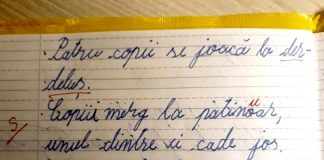 Patru copii se joacă la der-
deluș.
Copiii merg la patinuar,
unul dintre ii cade jos.